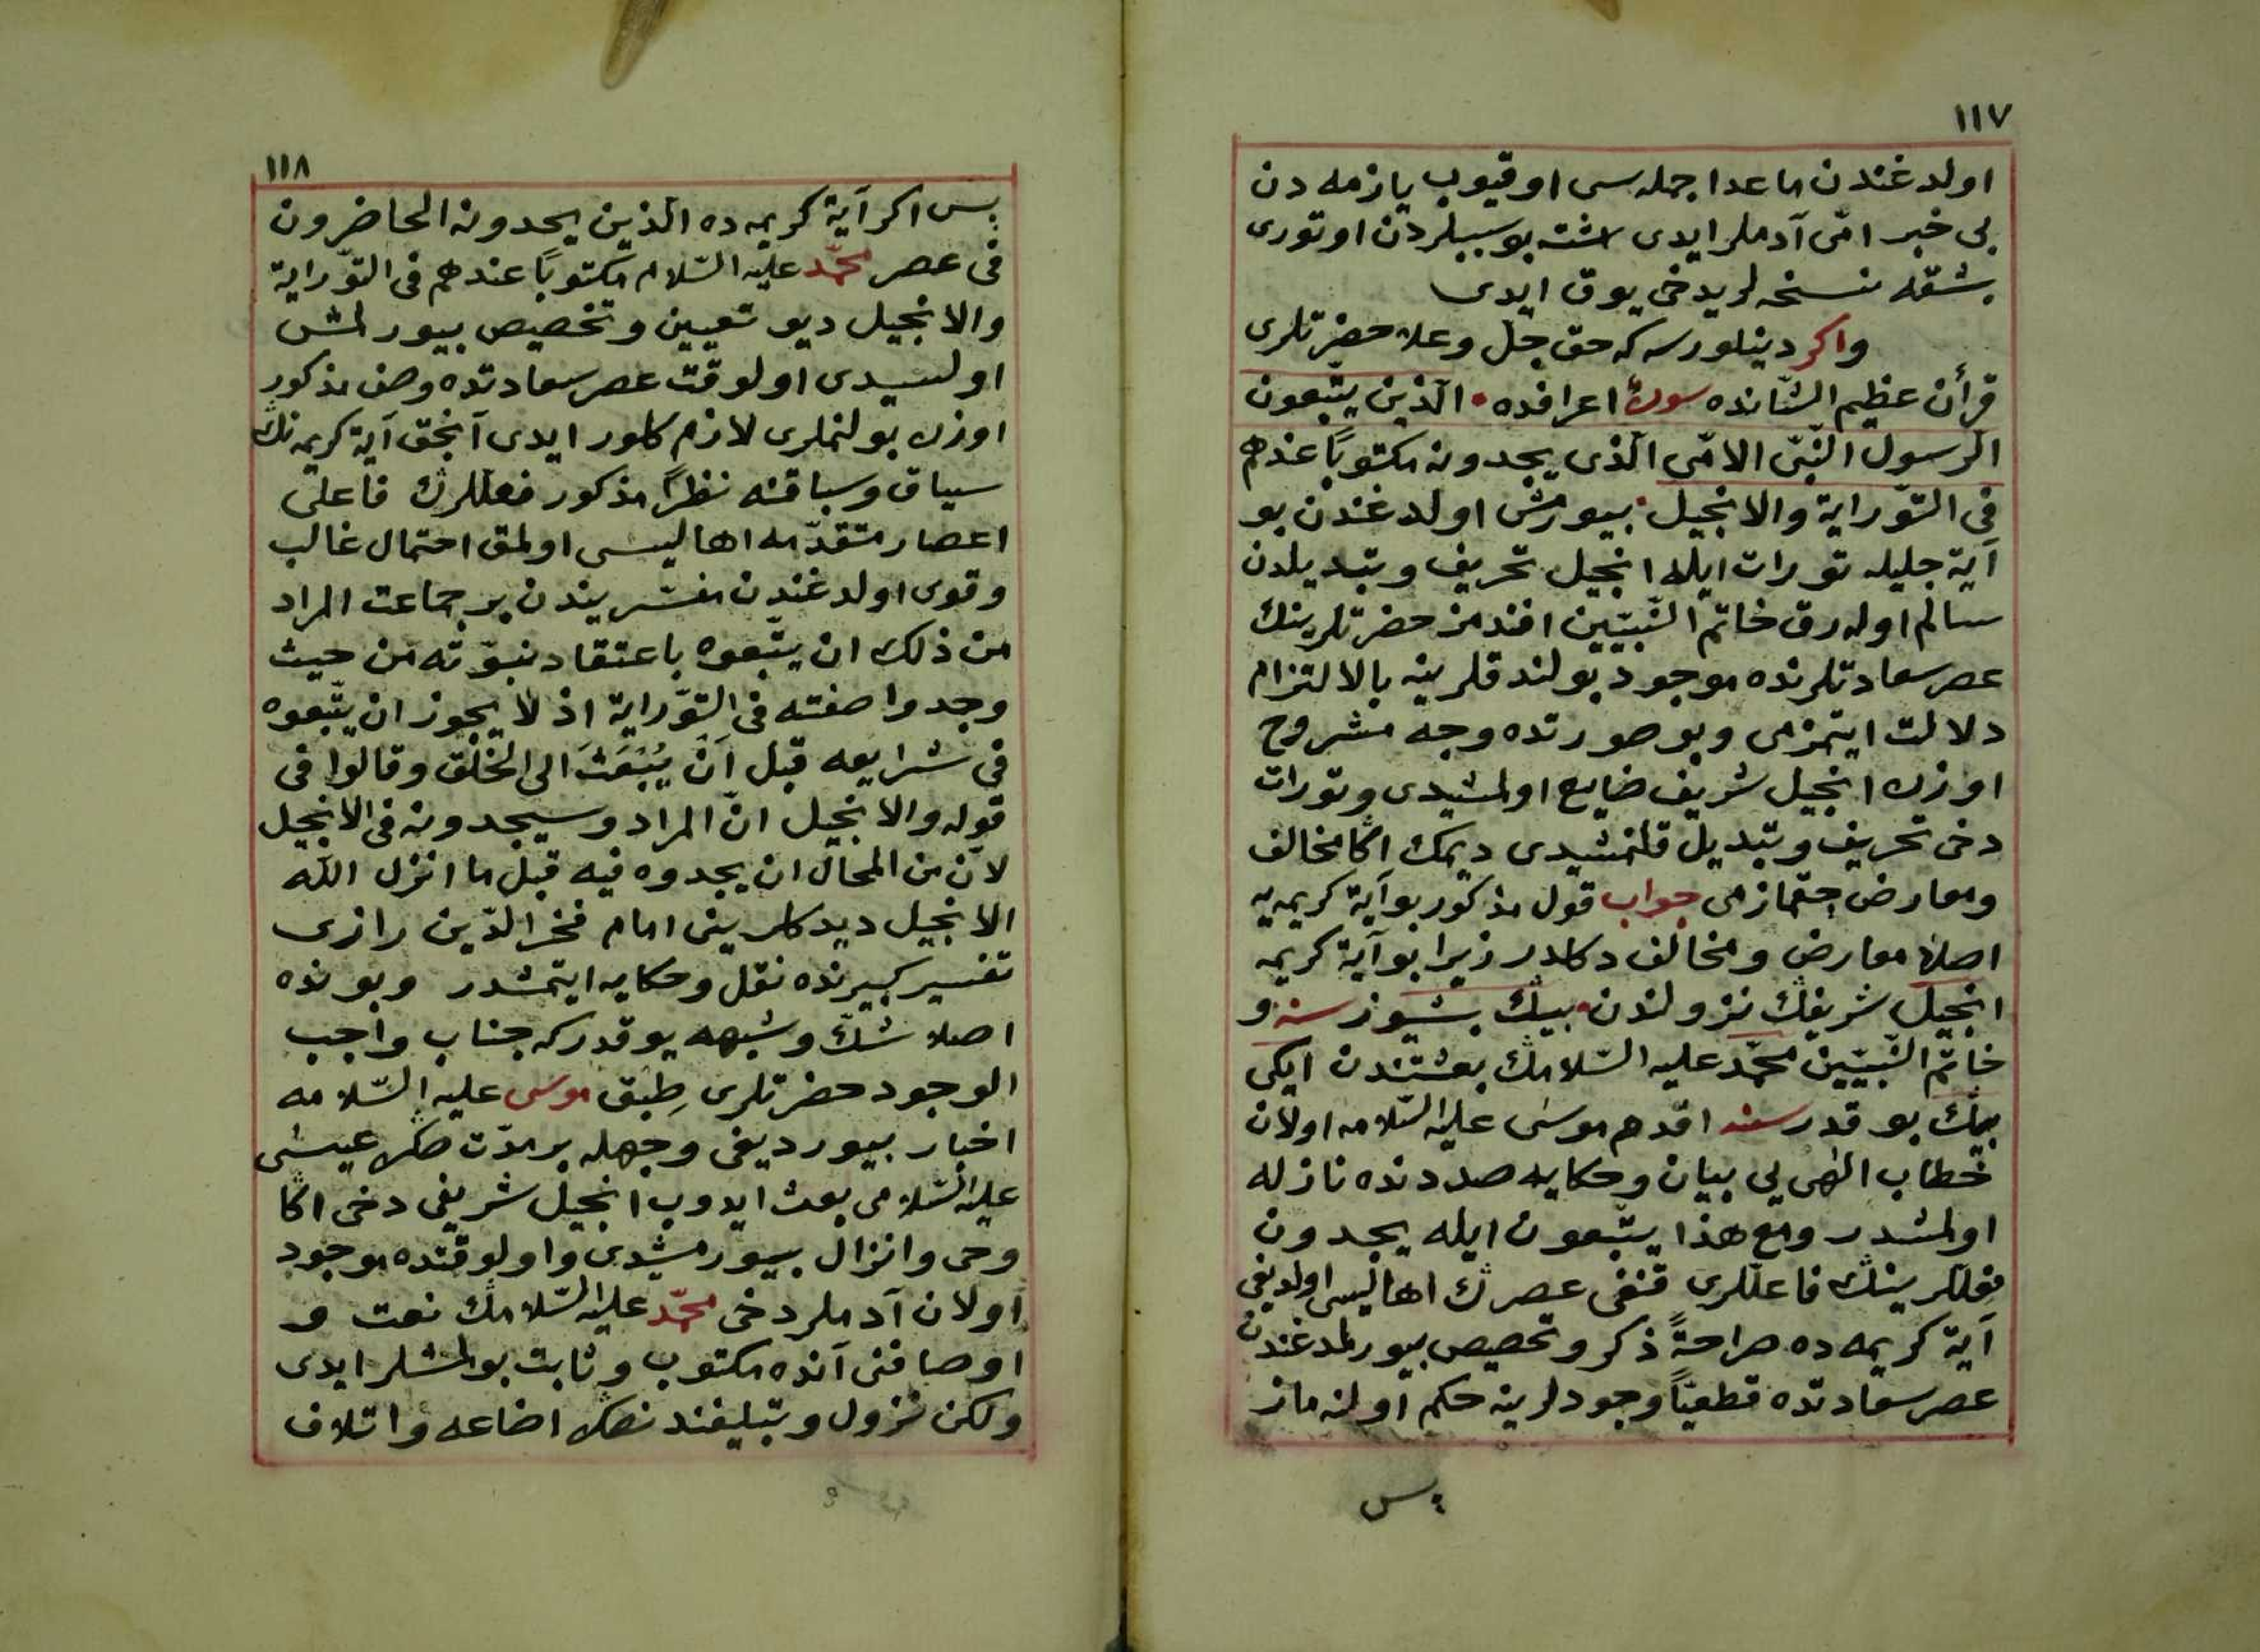 ١١٧
اولدغندن ماعدا جمله سى اوقيوب يازمه دن
بى خبر امّى آدملر ايدى اشته بو سببلردن اوتورى
بشقه نسخه لريدخى يوق ايدى
واكر دينلورسه كه حق جلّ وعلا حضرتلرى
قرأن عظيم الشّانده سورۀ اعرافده • الّذين يتّبعون
الرسول النّبىّ الامّى الّذى يجدونه مكتوباً عندهم
فى التوّراية والانجيل • بيورمش اولدغندن بو
آية جليله تورات ايله انجيل تحريف وتبديلدن
سالم اوله رق خاتم النّبيّين افندمز حضرتلرينك
عصر سعادتلرنده موجود بولندقلرينه بالالتزام
دلالت ايتمزمى وبو صورتده وجه مشروح
اوزره انجيل شريف ضايع اولمشيدى وتورات
دخى تحريف وتبديل قلنمشيدى ديمك اكا مخالف
ومعارض چقمازمى جواب قول مذكور بو آية كريمه يه
اصلا معارض ومخالف دكلدر زيرا بو آية كريمه
انجيل شريفڭ نزولندن • بيڭ بشيوز سنه و
خاتم النّبيّين محمّد عليه السّلامڭ بعثتندن ايكى
بيڭ بو قدر سنه اقدم موسى عليه السّلامه اولان
خطاب الٰهى يى بيان وحكايه صددنده نازله
اولمشدر ومع هذا يتّبعون ايله يجدون
فعللرينڭ فاعللرى قنغى عصرڭ اهاليسى اولديغى
آية كريمه ده صراحةً ذكر وتخصيص بيورلمدغندن
عصر سعادتده قطعيّاً وجودلرينه حكم اولنه ماز
پس
١١٨
پس اكر آية كريمه ده الّذين يجدونه الحاضرون
فى عصر محمّد عليه السّلام مكتوباً عندهم فى التوّراية
والانجيل ديو تعيين وتخصيص بيورلمش
اولسيدى اولوقت عصر سعادتده وصف مذكور
اوزره بولنملرى لازم كلور ايدى آنجق آية كريمه نڭ
سياق وسباقنه نظراً مذكور فعللرڭ فاعلى
اعصار متقدّمه اهاليسى اولمق احتمال غالب
وقوى اولدغندن مفسّريندن بر جماعت المراد
من ذلك ان يتّبعوه باعتقاد نبوّته من حيث
وجدوا صفته فى التوّراية اذ لا يجوز ان يتّبعوه
فى شرايعه قبل اَنْ يُبْعَثَ الى الخلق وقالوا فى
قوله والانجيل انّ المراد وسيجدونه فى الانجيل
لانّ من المحال ان يجدوه فيه قبل ما انزل اللّه
الانجيل ديدكلرينى امام فخر الدّين رازى
تفسير كبيرنده نقل وحكايه ايتمشدر وبونده
اصلا شكّ وشبهه يوقدر كه جناب واجب
الوجود حضرتلرى طِبق موسى عليه السّلامه
اخبار بيورديغى وجهله بر مدّت صكره عيسى
عليه السّلامى بعث ايدوب انجيل شريفى دخى اكا
وحى وانزال بيورمشيدى واولوقتده موجود
اولان آدملر دخى محمّد عليه السّلامڭ نعت و
اوصافنى آنده مكتوب وثابت بولمشلر ايدى
ولكن نزول وتبليغندنصكره اضاعه واتلاف